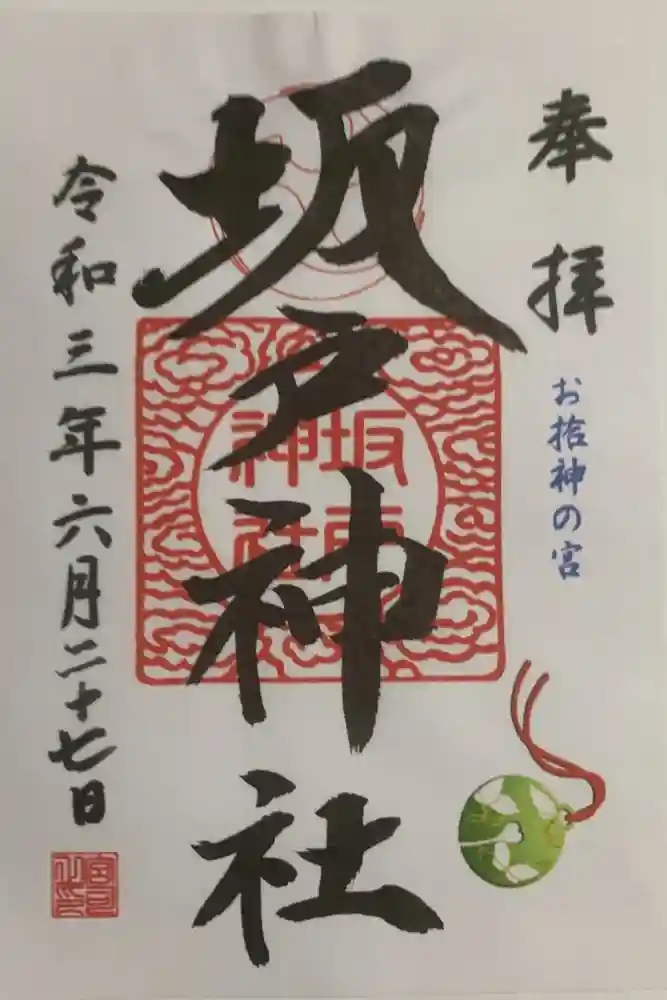 奉拝
お拾神の宮
坂戸神社
坂戸
神社
令和三年六月二十七日